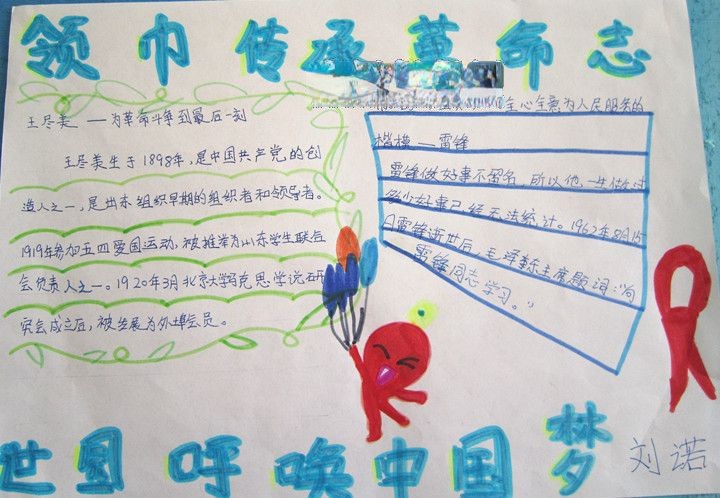 领巾传承革命志
王尽美 —为革命斗争到最后一刻
王尽美生于1898年,是中国共产党的创
造人之一,是山东组织早期的组织者和领导者。
1919年参加五四爱国运动,被推举为山东学生联合
会负责人之一。1920年3月北京大学马克思学说研
究会成立后,被发展为外埠会员。
全心全意为人民服务的
楷模 — 雷锋
雷锋做好事不留名,所以他一生做过
多少好事已经无法统计。1962年8月15
日雷锋逝世后,毛泽东主席题词:“向
雷锋同志学习。”
世园呼唤中国梦
刘诺